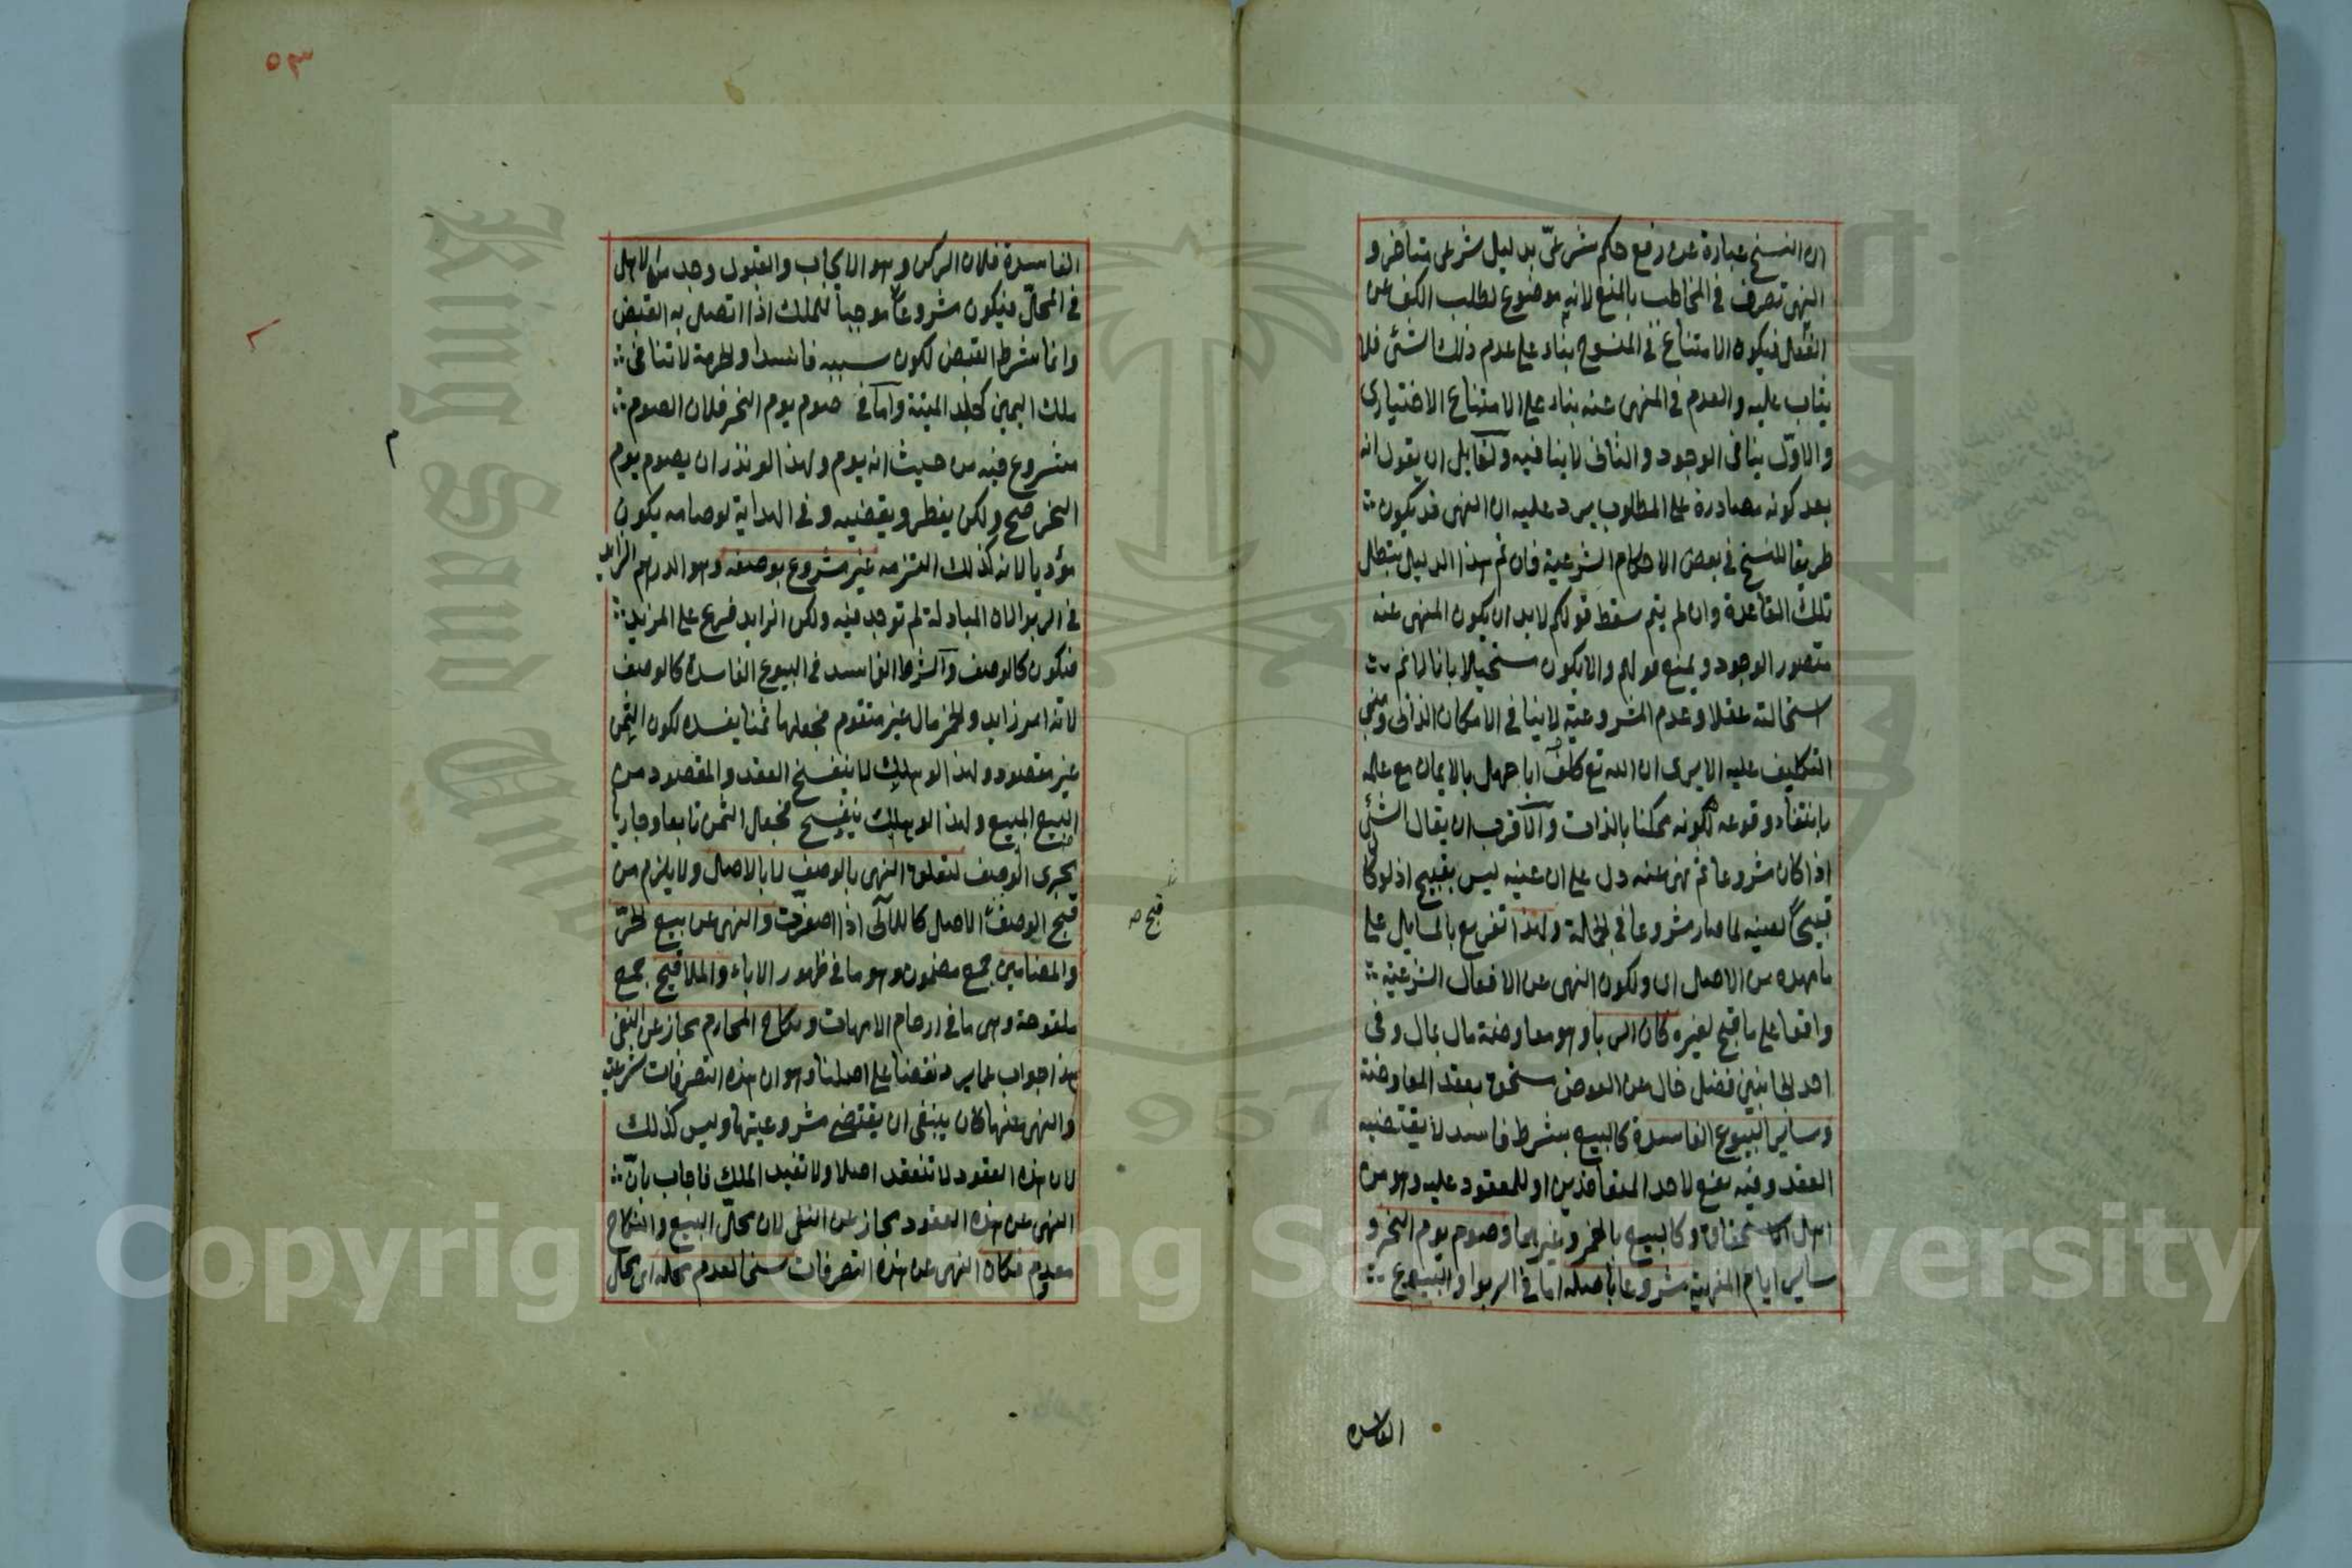 ان النسخ عبارة عن رفع حكم شرعىّ بدليل شرعى متأخر و
النهى تصرف فى المخاطب بالمنع لانه موضوع لطلب الكف عن
الفعل فيكون الامتناع فى المنسوخ بناء على عدم ذلك الشئ فلا
يثاب عليه والعدم فى المنهى عنه بناء على الامتناع الاختيارى
والاوّل ينافى الوجود والثانى لا ينافيه ولقايل ان يقول انه
بعد كونه مصادرة على المطلوب يرد عليه ان النهى قد يكون
طريقا للنسخ فى بعض الاحكام الشرعية فان تم هذا الدليل بتطل
تلك القاعدة وان لم يتم سقط قولكم لابد ان يكون المنهى عنه
متصور الوجود ويمنع قولهم والا يكون مستحيلا بانا لا نم
استحالته عقلا وعدم المشروعية لا ينافى الامكان الذاتى ومبنى
التكليف عليه الا يرى ان الله تع كلف ابا جهل بالايمان مع علمه
بانتفاء وقوعه لكونه ممكنا بالذات والاقرب ان يقال الشئ
اذا كان مشروعا ثم نهى عنه دل على ان عينه ليس بقبيح اذ لو كان
قبيحا لعينه لما صار مشروعا فى الجملة ولهذا تفريع بالمسايل على
ما مهده من الاصل اى ولكون النهى عن الافعال الشرعية
واقعا على ما قبح لغيره كان الربا وهو معاوضة مال بمال وفى
احد الجانبين فضل خال عن العوض مستحق بعقد المعاوضة
وساير البيوع الفاسدة كالبيع بشرط فاسد لا يقتضيه
العقد وفيه نفع لاحد المتعاقدين او للمعقود عليه وهو من
اهل الاستحقاق وكالبيع بالخمر وغيرهما وصوم يوم النحر و
ساير ايام المنهية مشروعا باصله اما فى الربوا والبيوع
الفاسده
٥٣
الفاسدة فلان الركن وهو الايجاب والقبول وجد من الاهل
فى المحلّ فيكون مشروعا موجبا للملك اذا اتصل به القبض
وانما شرط القبض لكون سببه فاسدا والحرمة لا تنافى
ملك اليمين كجلد الميتة واما فى صوم يوم النحر فلان الصوم
مشروع فيه من حيث انه يوم ولهذا لو نذر ان يصوم يوم
النحر صح ولكن يفطر ويقضيه وفى الهداية لو صامه يكون
مؤديا لانه كذلك التزمه غير مشروع بوصفه وهو الدرهم الزايد
فى الربوا لان المبادلة لم توجد فيه ولكن الزايد فرع على المزيد
فيكون كالوصف والشرط الفاسد فى البيوع الفاسدة كالوصف
لانه امر زايد والخمر مال غير متقوم فجعلها ثمنا يفسده لكون الثمن
غير مقصود ولهذا لو هلك لا ينفسخ العقد والمقصود من
البيع المبيع ولهذا لو هلك ينفسخ فجعل الثمن تابعا وجاريا
مجرى الوصف لتعلق النهى بالوصف لا بالاصل ولا يلزم من
قبح الوصف الاصل كاللآلى اذا اصفرّت والنهى عن بيع الحرّ
قبح صه
والمضامين جمع مضمون وهو ما فى ظهور الاباء والملاقيح جمع
ملقوحة وهى ما فى ارحام الامهات ونكاح المحارم مجاز عن النفى
هذا جواب عما يرد نقضا على اصلنا وهو ان هذه التصرفات شرعية
والنهى عنها كان ينبغى ان يقتضى مشروعيتها وليس كذلك
لان هذه العقود لا تنعقد اصلا ولا تفيد الملك فاجاب بانّ
النهى عن هذه العقود مجاز عن النفى لان محلّ البيع والنكاح
معدوم فكان النهى عن هذه التصرفات نسخا لعدم محله اى محل